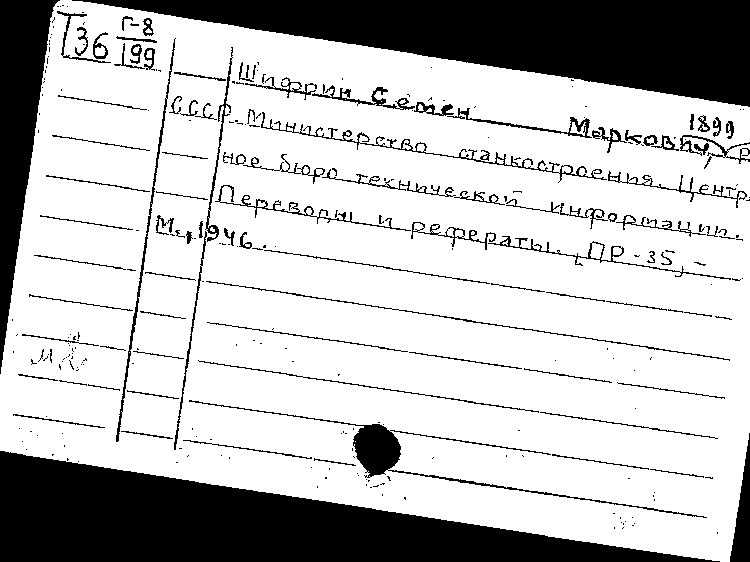 Т36 Г-8
199
1899
Шифрин, Семен Маркович,
СССР. Министерство станкостроения. Центр
ное бюро технической информации.
Переводы и рефераты. [ПР-35, -
М., 1946.